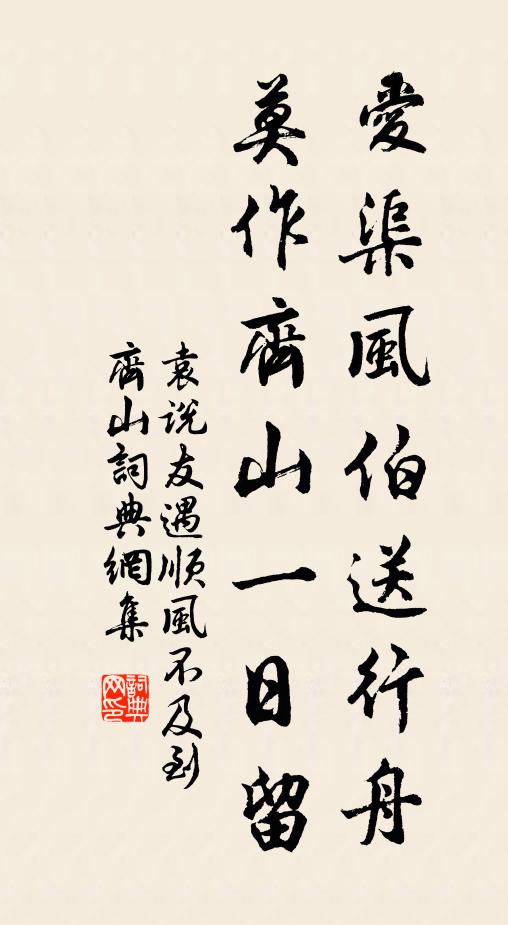 愛渠風伯送行舟
莫作齊山一日留
袁说友遇順風不及到
齊山詞典網集
詞典网印